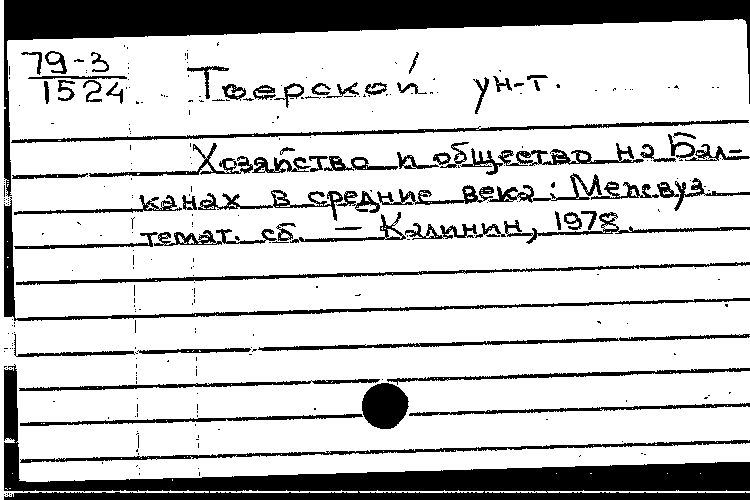 79-3
1524
Тверской ун-т.
Хозяйство и общество на Бал-
канах в средние века: Межвуз.
темат. сб. — Калинин, 1978.